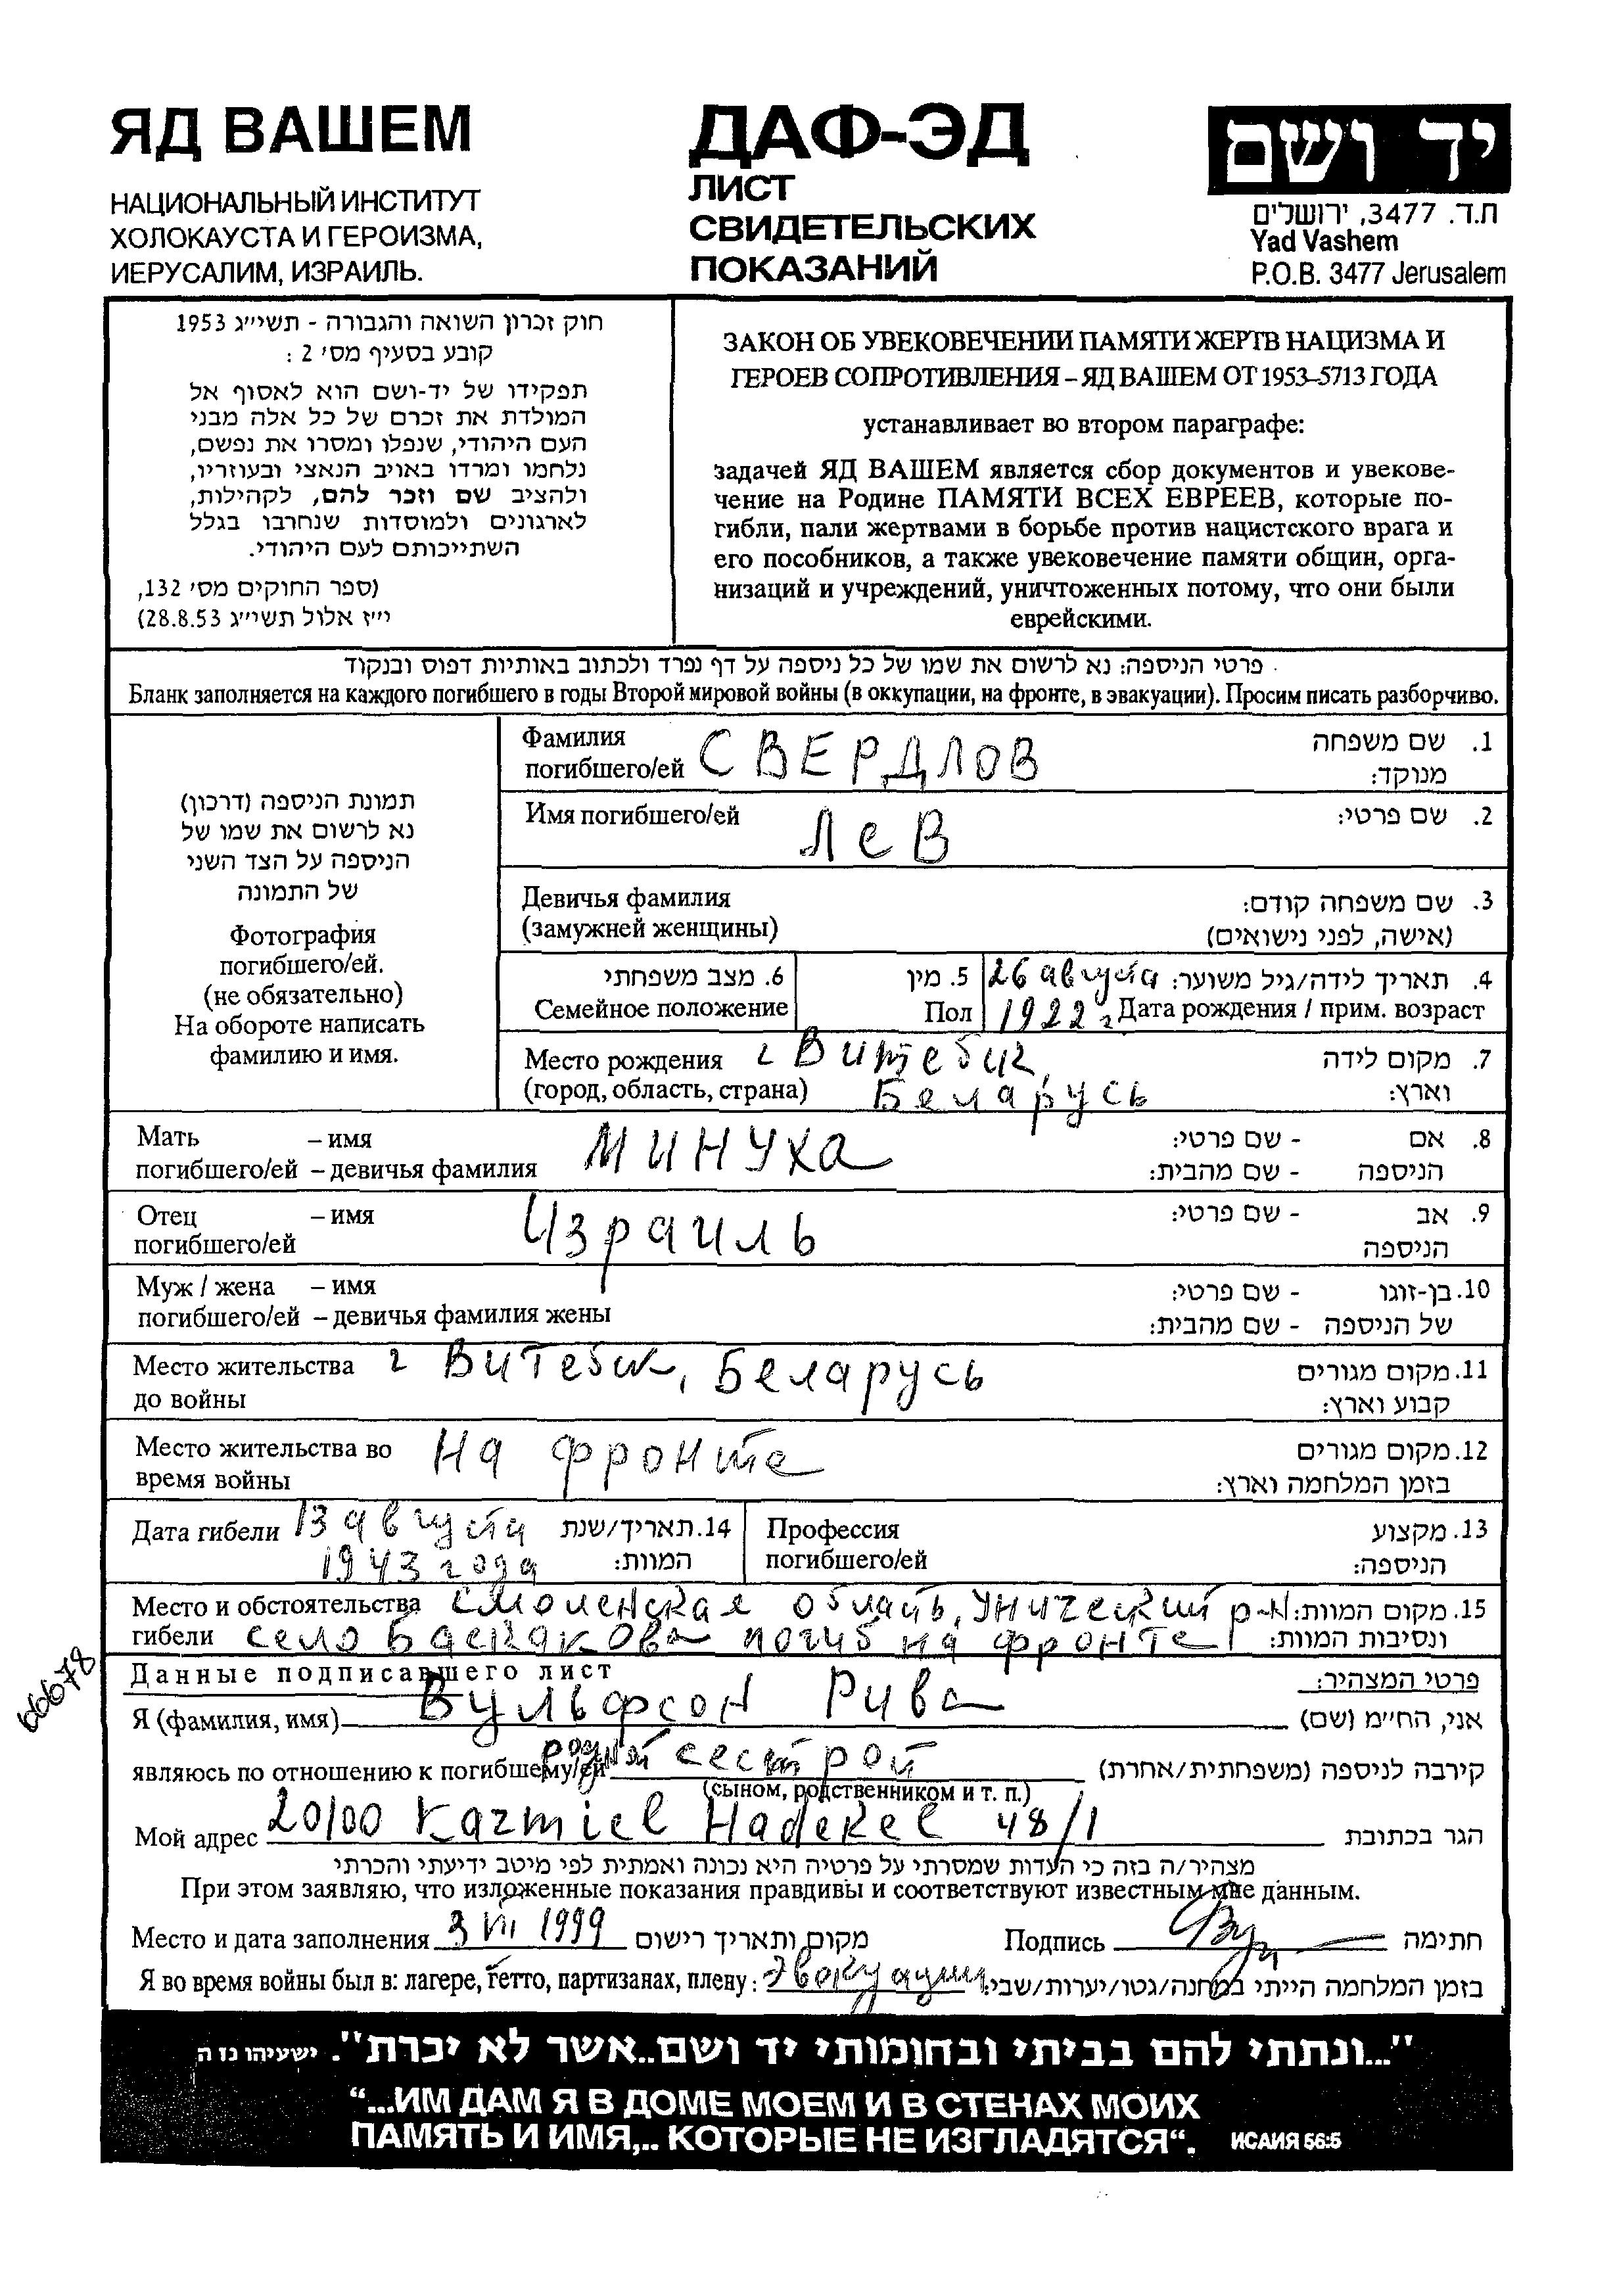 ЯД ВАШЕМ
НАЦИОНАЛЬНЫЙ ИНСТИТУТ
ХОЛОКАУСТА И ГЕРОИЗМА,
ИЕРУСАЛИМ, ИЗРАИЛЬ.
ДАФ-ЭД
ЛИСТ
СВИДЕТЕЛЬСКИХ
ПОКАЗАНИЙ
יד ושם
ת.ד. 3477, ירושלים
Yad Vashem
P.O.B. 3477 Jerusalem
חוק זכרון השואה והגבורה - תשי״ג 1953
קובע בסעיף מס׳ 2 :
תפקידו של יד-ושם הוא לאסוף אל
המולדת את זכרם של כל אלה מבני
העם היהודי, שנפלו ומסרו את נפשם,
נלחמו ומרדו באויב הנאצי ובעוזריו,
ולהציב שם וזכר להם, לקהילות,
לארגונים ולמוסדות שנחרבו בגלל
השתייכותם לעם היהודי.
(ספר החוקים מס׳ 132,
י״ז אלול תשי״ג 28.8.53)
ЗАКОН ОБ УВЕКОВЕЧЕНИИ ПАМЯТИ ЖЕРТВ НАЦИЗМА И
ГЕРОЕВ СОПРОТИВЛЕНИЯ – ЯД ВАШЕМ ОТ 1953–5713 ГОДА
устанавливает во втором параграфе:
задачей ЯД ВАШЕМ является сбор документов и увекове-
чение на Родине ПАМЯТИ ВСЕХ ЕВРЕЕВ, которые по-
гибли, пали жертвами в борьбе против нацистского врага и
его пособников, а также увековечение памяти общин, орга-
низаций и учреждений, уничтоженных потому, что они были
еврейскими.
פרטי הניספה: נא לרשום את שמו של כל ניספה על דף נפרד ולכתוב באותיות דפוס ובנקוד
Бланк заполняется на каждого погибшего в годы Второй мировой войны (в оккупации, на фронте, в эвакуации). Просим писать разборчиво.
תמונת הניספה (דרכון)
נא לרשום את שמו של
הניספה על הצד השני
של התמונה
Фотография
погибшего/ей.
(не обязательно)
На обороте написать
фамилию и имя.
Фамилия СВЕРДЛОВ 1. שם משפחה
погибшего/ей מנוקד:
Имя погибшего/ей Лев 2. שם פרטי:
Девичья фамилия 3. שם משפחה קודם:
(замужней женщины) (אישה, לפני נישואים)
6. מצב משפחתי 5. מין 26 августа 4. תאריך לידה/גיל משוער:
Семейное положение Пол 1922 г. Дата рождения / прим. возраст
Место рождения г Витебск, 7. מקום לידה
(город, область, страна) Беларусь וארץ:
Мать – имя МИНУХА 8. אם - שם פרטי:
погибшего/ей – девичья фамилия הניספה - שם מהבית:
Отец – имя Израиль 9. אב - שם פרטי:
погибшего/ей הניספה
Муж / жена – имя 10. בן-זוגו - שם פרטי:
погибшего/ей – девичья фамилия жены של הניספה - שם מהבית:
Место жительства г Витебск, Беларусь 11. מקום מגורים
до войны קבוע וארץ:
Место жительства во На фронте 12. מקום מגורים
время войны בזמן המלחמה וארץ:
Дата гибели 13 августа 14. תאריך/שנת Профессия 13. מקצוע
1943 года המוות: погибшего/ей הניספה:
Место и обстоятельства Смоленская область, Унический р-н 15. מקום המוות:
гибели село погиб на фронте ונסיבות המוות:
Данные подписавшего лист פרטי המצהיר:
Я (фамилия, имя) Вульфсон Рива אני, החי״מ (שם)
являюсь по отношению к погибшему/ей родной сестрой קירבה לניספה (משפחתית/אחרת)
(сыном, родственником и т. п.)
Мой адрес 20100 Karmiel Hadekel 48/1 הגר בכתובת
מצהיר/ה בזה כי העדות שמסרתי על פרטיה היא נכונה ואמתית לפי מיטב ידיעתי והכרתי
При этом заявляю, что изложенные показания правдивы и соответствуют известным мне данным.
Место и дата заполнения 3 VII 1999 מקום ותאריך רישום Подпись חתימה
Я во время войны был в: лагере, гетто, партизанах, плену: эвакуации בזמן המלחמה הייתי במחנה/גטו/יערות/שבי:
66678
"...ונתתי להם בביתי ובחומותי יד ושם..אשר לא יכרת". ישעיהו נז ה
“...ИМ ДАМ Я В ДОМЕ МОЕМ И В СТЕНАХ МОИХ
ПАМЯТЬ И ИМЯ,.. КОТОРЫЕ НЕ ИЗГЛАДЯТСЯ“. ИСАИЯ 56:5